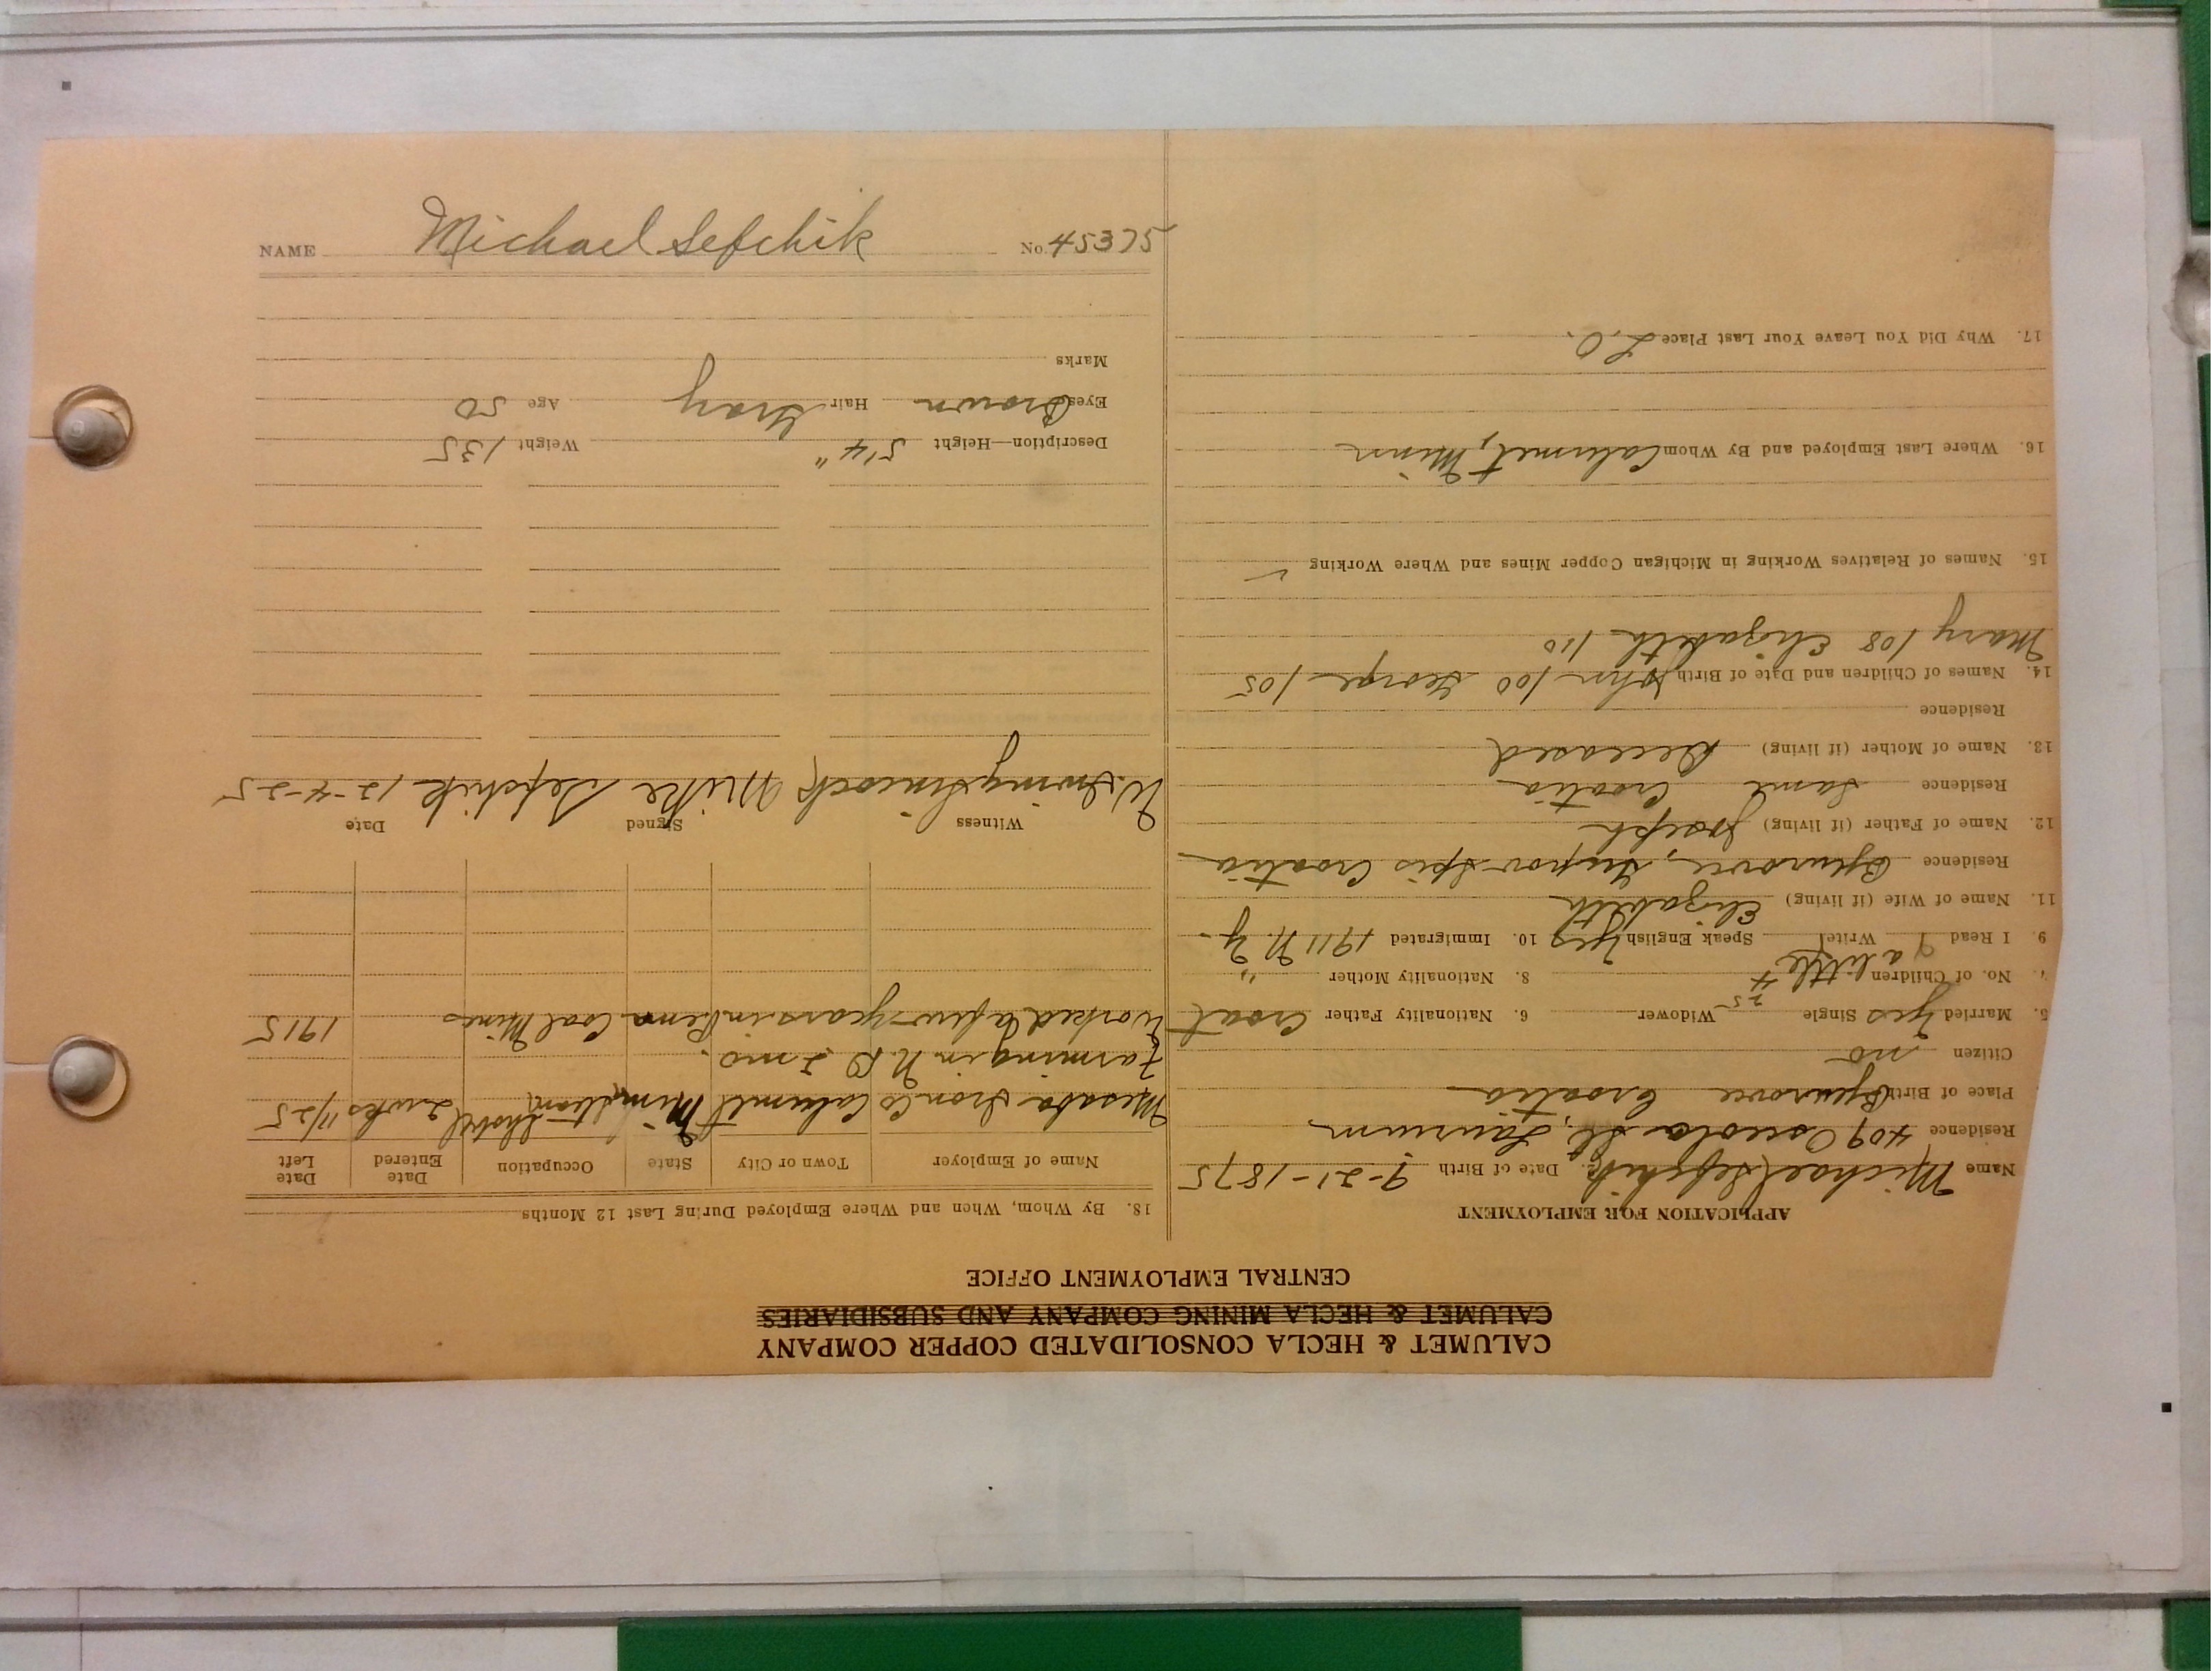 NAME Michael Sefchik No. 45375
CALUMET & HECLA CONSOLIDATED COPPER COMPANY
CALUMET & HECLA MINING COMPANY AND SUBSIDIARIES
CENTRAL EMPLOYMENT OFFICE
APPLICATION FOR EMPLOYMENT
Name Michael Sefchik Date of Birth 9-21-1875
Residence 409 Osceola St., Laurium
Place of Birth Croatia
Citizen no
5. Married yes 25 Single Widower 6. Nationality Father Croat
7. No. of Children 4 8. Nationality Mother "
9. I Read a little Write Speak English yes 10. Immigrated 1911 N.Y.
11. Name of Wife (if living) Elizabeth
Residence Croatia
12. Name of Father (if living) Joseph
Residence Same Croatia
13. Name of Mother (if living) Deceased
Residence
14. Names of Children and Date of Birth John 100 George 105
Mary 108 Elizabeth 110
15. Names of Relatives Working in Michigan Copper Mines and Where Working
16. Where Last Employed and By Whom Calumet, Minn
17. Why Did You Leave Your Last Place L.O.
18. By Whom, When and Where Employed During Last 12 Months
Name of Employer Town or City State Occupation Date Entered Date Left
Mesaba Iron Co Calumet Minn Steam Shovel 2 wks 11/25
Farming in N.D. 2 mo.
Worked a few years in Penn Coal Mines 1915
Witness Signed Date
Mike Sefchik 12-4-25
Description—Height 5'4" Weight 135
Eyes Brown Hair Gray Age 50
Marks